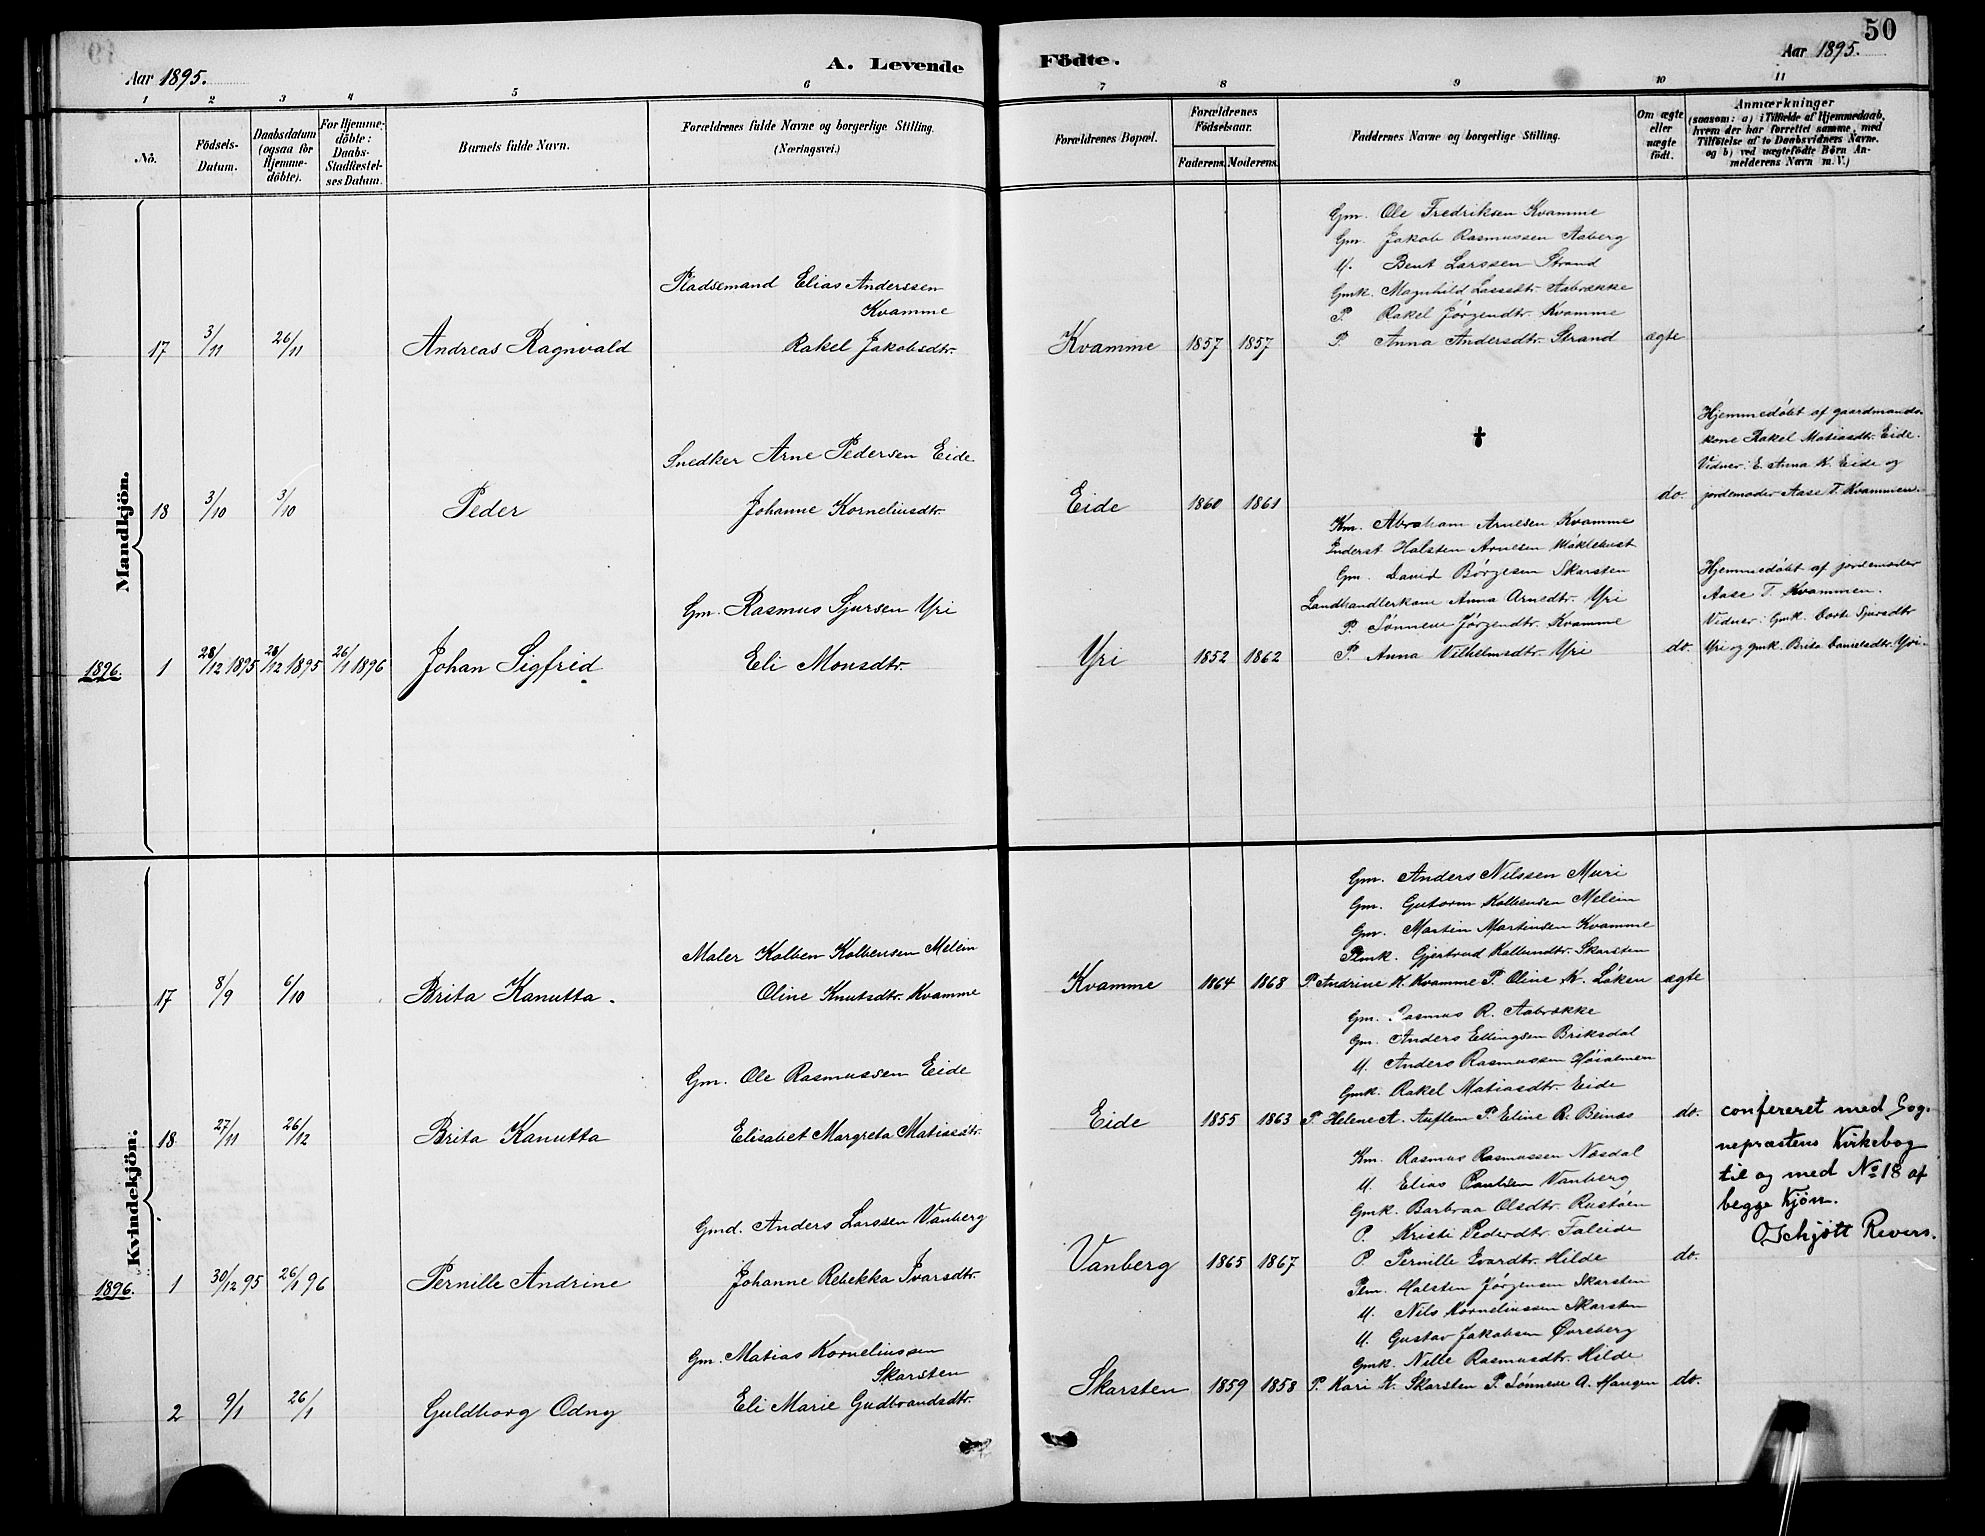 50
Aar 1895.
A. Levende
Födte.
Aar 1895.
1
2
3
4
5
6
7
8
9
10
11
No.
Födsels-
Datum.
Daabsdatum
(ogsaa for
Hjemme-
döbte).
For Hjemme-
döbte:
Daabs-
Stadfestel-
ses Datum.
Barnets fulde Navn.
Forældrenes fulde Navne og borgerlige Stilling.
(Næringsvei.)
Forældrenes Bopæl.
Forældrenes
Födselsaar.
Faderens.
Moderens.
Faddernes Navne og borgerlige Stilling.
Om ægte
eller
uægte
födt.
Anmærkninger
(saasom: a) i Tilfælde af Hjemmedaab,
hvem der har forrettet samme, med
Tilföielse af to Daabsvidners Navne,
og b) ved uægtefödte Börn An-
melderens Navn m. V.)
Mandkjön.
17
3/11
26/11
Andreas Ragnvald
Pladsemand Elias Anderssen
Kvamme
Rakel Jakobsdtr.
Kvamme
1857
1857
Gm. Ole Fredriksen Kvamme
Gm. Jakob Rasmussen Aaberg
U. Bent Larssen Strand
Gmk. Magnhild Lassedtr. Aabrække
P. Rakel Jørgendtr. Kvamme
P. Anna Andersdtr. Strand
ægte
18
3/10
3/10
Peder
Snedker Arne Pedersen Eide
Johanne Korneliusdtr.
Eide
1860
1861
✝
do.
Hjemmedøbt af gaardmands-
kone Rakel Matiasdtr. Eide.
Vidner: E. Anna K. Eide og
jordemoder Aase T. Kvammen.
1896.
1
28/12 1895
28/12 1895
26/1 1896
Johan Sigfrid
Gm. Rasmus Sjursen Yri
Eli Monsdtr.
Yri
1852
1862
Km. Abraham Arnesen Kvamme
Inderst Halsten Arnesen Møklebust
Gm. David Børgesen Skarsten
Landhandlerkone Anna Arnedtr. Yri
P. Sønneve Jørgendtr. Kvamme
P. Anna Vilhelmsdtr. Yri
do.
Hjemmedøbt af jordemoder
Aase T. Kvammen.
Vidner: Gmk. Dorte Sjursdtr
Yri og gmk. Brita Danielsdtr. Yri.
Kvindekjön.
17
8/9
6/10
Brita Kanutta.
Maler Kolben Kolbensen Melein
Oline Knutsdtr. Kvamme
Kvamme
1864
1868
Gm. Anders Nilssen Muri
Gm. Gutorm Kolbensen Melein
Gm. Martin Martinsen Kvamme
Plmk. Gjertrud Kolbendtr. Skarsten
P. Andrine K. Kvamme P. Oline K. Løken
ægte
18
27/11
26/12
Brita Kanutta
Gm. Ole Rasmussen Eide
Elisabet Margreta Matiasdtr.
Eide
1855
1863
Gm. Rasmus R. Aabrække
Gm. Anders Ellingsen Briksdal
U. Anders Rasmussen Høialmen
Gmk. Rakel Matiasdtr. Eide
P. Helene A. Auflem P. Eline R. Beinæs
do.
confereret med Sog-
nepræstens Kirkebog
til og med No 18 af
begge Kjøn.
O. Schjött Revers.
1896.
1
30/12 95
26/1 96
Pernille Andrine
Gmd. Anders Larssen Vanberg
Johanne Rebekka Ivarsdtr.
Vanberg
1865
1867
Km. Rasmus Rasmussen Nosdal
U. Elias Paulsen Vanberg
Gmk. Barbraa Olsdtr. Rustøen
P. Kristi Pederdtr. Faleide
P. Pernille Ivardtr. Hilde
do.
2
9/1
26/1
Guldborg Odny
Gm. Matias Korneliussen
Skarsten
Eli Marie Gudbrandsdtr.
Skarsten
1859
1858
Plm. Halsten Jørgensen Skarsten
U. Nils Korneliussen Skarsten
U. Gustav Jakobsen Øvreberg
Gmk. Nille Rasmusdtr. Hilde
P. Kari K. Skarsten P. Sønneve A. Haugen
do.